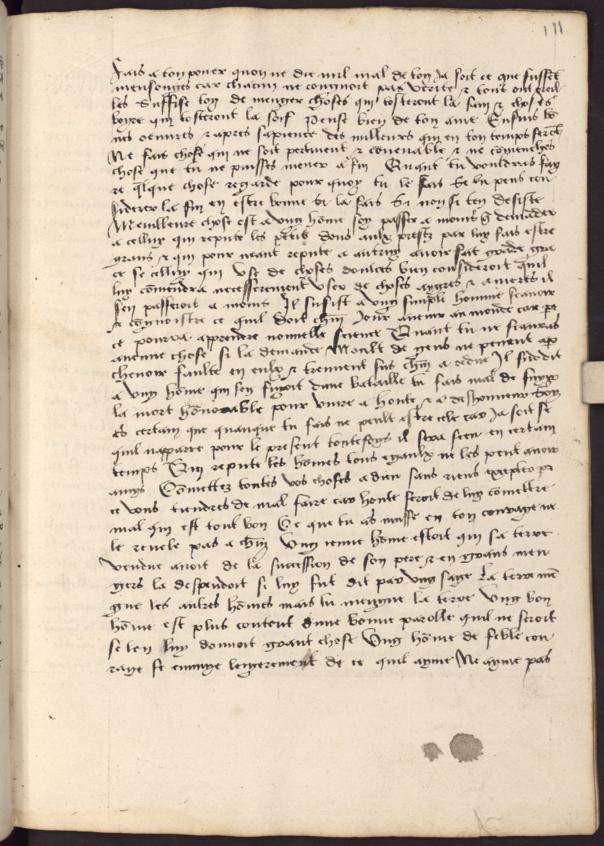 111
Fais a ton pouer quon ne die nul mal de toy Ja soit ce que fussēt
mensonges car chacun ne congnoit pas verite & tous ont oreil
les Suffise toy de menger choses qui tosteront la fain & choses
boyre qui tosteront la soif Pense bien de ton ame Ensuis bō
nes oeuures & apres sapience des meilleurs qui en ton temps serōt
Ne fais chose qui ne soit pertinent & conuenable & ne cōmenches
chose que tu ne puisses mener a fin Quant tu vouldras fay
re qlque chose regarde pour quoy tu le fais Se tu pens con
siderer la fin en estre bonne si la fais Si non si ten desiste
Meilleure chose est a vng hōme soy passer a moins q demāder
a celluy qui repute les petis dons aulx prestz par luy fais estre
grans & qui pour neant repute a autruy auoir fait grāde gra
ce se celluy qui vse de choses doulces bien consideroit quil
luy conuendra necesserement vser de choses aygres & ameres il
sen passeroit a moins Il suffist a vng simple homme scauoir
& congnoistre ce quil doit chūn Jour au monde car
ce pourra apprendre nouuelle science Quant tu ne scauras
aucune chose si la demande Moult de gens ne peuent ap
cheuoir faulte en eulx & treuuent sus chūn a redire Il fut dit
a vng hōme qui sen fuyoit dune bataille tu fais mal de fuyr
la mort honnorable pour viure a honte & a deshonneur Soyes
certain que quanque tu fais ne peult estre cele car Ja soit ce
quil napaire pour le present toutesfoys il sera sceu en certain
temps Qui repute les hōmes tous egaulx ne les peut auoir
amys Cōmettez toutes vos choses a dieu sans riens excepter
ce vous tiendres de mal faire car honte seroit de luy cōmettre
mal qui est tout bon Ce que tu as musse en ton courage ne
le reuele pas a chūn Vng ieune hōme estoit qui sa terre
vendue auoit de la succession de son pere & en grans men
gers la despendoit si luy fut dit par vng sage La terre mē
gue les autres hōmes mais tu mengue la terre Vng bon
hōme est plus content dune bonne parolle quil ne seroit
se len luy donnoit grant chose Vng hōme de feble cou
raye se ennuye legierement de ce quil ayme Ne ayme pas